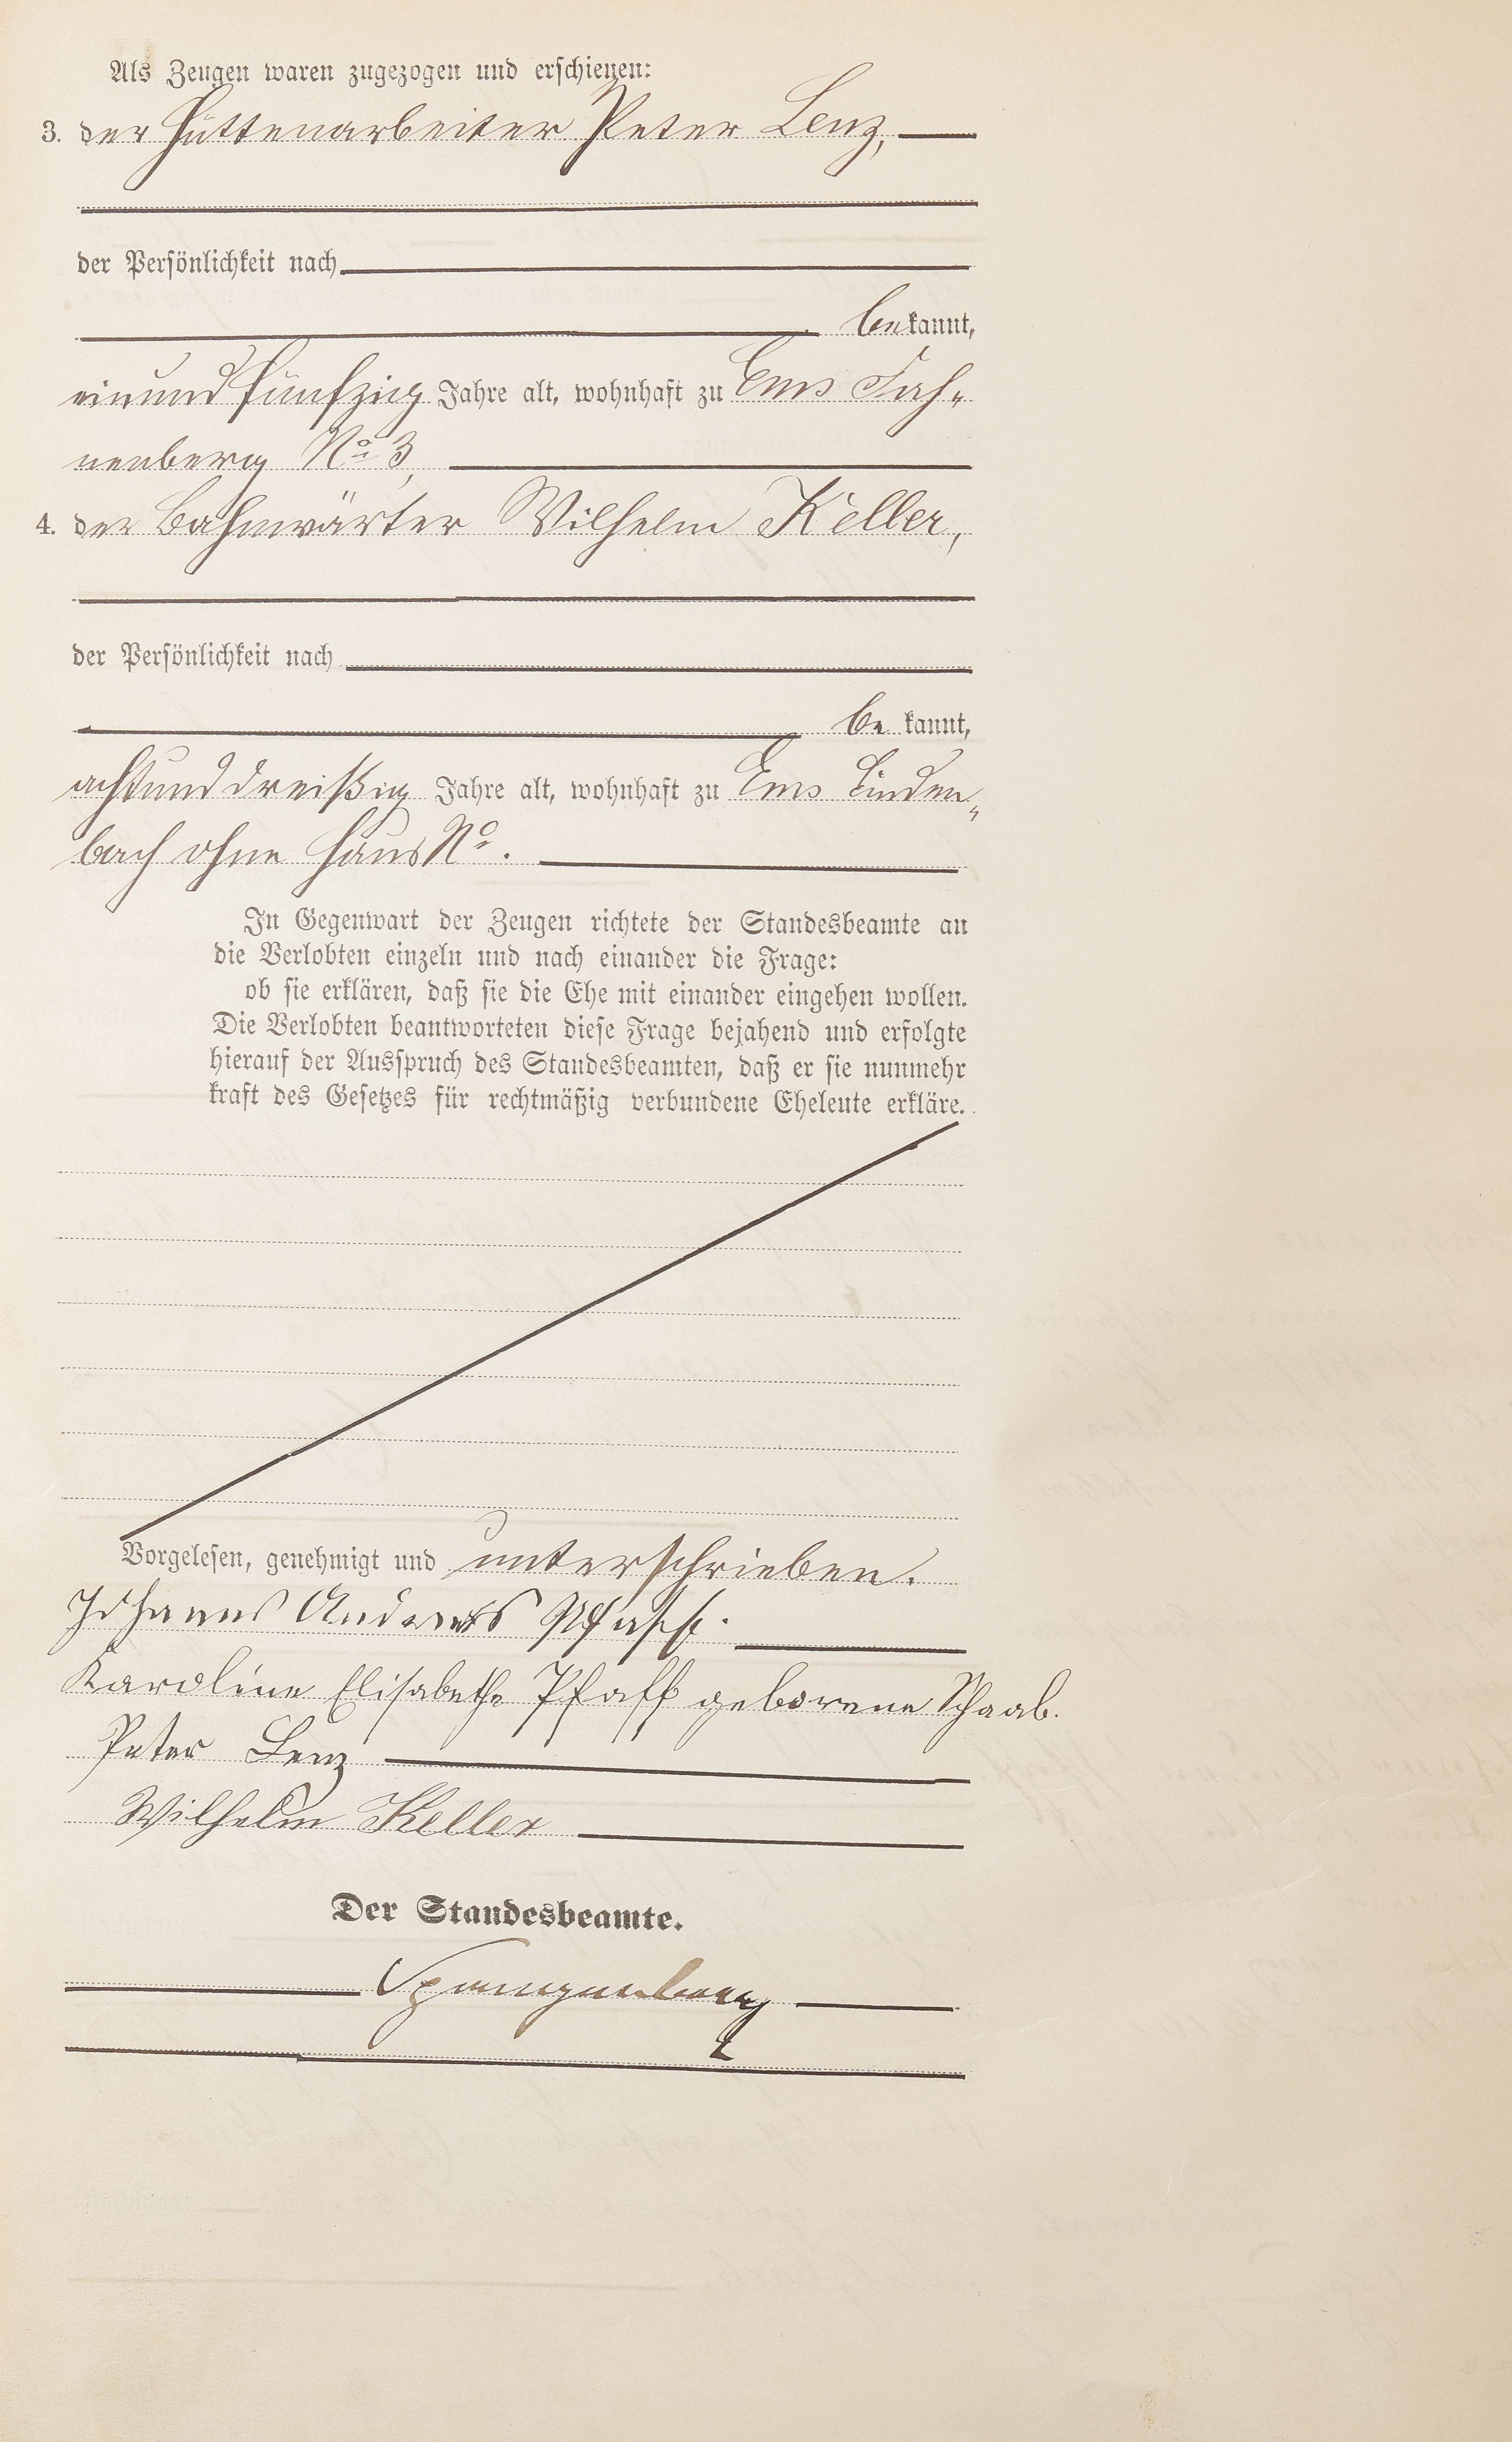 Als Zeugen waren zugezogen und erschienen:
3. der Hüttenarbeiter Peter Lenz,
der Persönlichkeit nach
bekannt,
einundfünfzig Jahre alt, wohnhaft zu Ems Fah-
nenberg No 3,
4. der Bahnwärter Wilhelm Keller,
der Persönlichkeit nach
be kannt,
achtunddreißig Jahre alt, wohnhaft zu Ems Linden-
bach ohne Haus No.
In Gegenwart der Zeugen richtete der Standesbeamte an
die Verlobten einzeln und nach einander die Frage:
ob sie erklären, daß sie die Ehe mit einander eingehen wollen.
Die Verlobten beantworteten diese Frage bejahend und erfolgte
hierauf der Ausspruch des Standesbeamten, daß er sie nunmehr
kraft des Gesetzes für rechtmäßig verbundene Eheleute erkläre.
Vorgelesen, genehmigt und unterschrieben.
Johannes Andreas Pfaff.
Karoline Elisabethe Pfaff geborene Schaab.
Peter Lenz
Wilhelm Keller
Der Standesbeamte.
Spangenberg